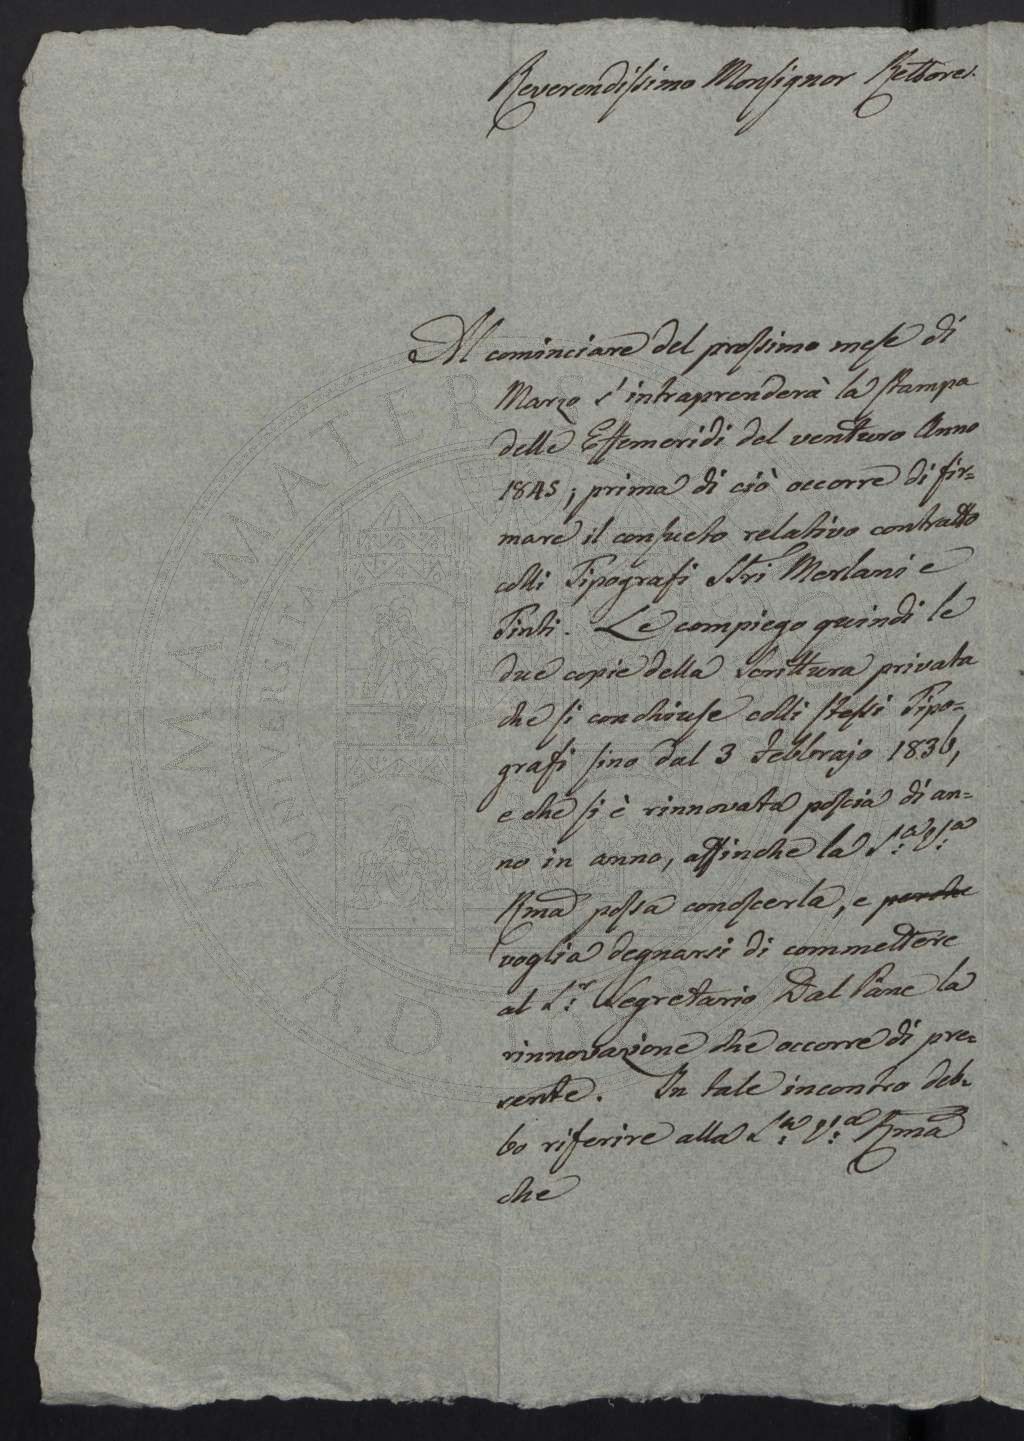 Reverendissimo Monsignor Rettore.
Al cominciare del prossimo mese di
Marzo s'intraprenderà la stampa
delle Effemeridi del venturo Anno
1845; prima di ciò occorre di fir=
mare il consueto relativo contratto
colli Tipografi Merlani e
Tinti. Le compiego quindi le
due copie della Scrittura privata
che si conchiuse colli stessi Tipo=
grafi sino dal 3 Febbrajo 1836,
e che si è rinnovata poscia di an=
no in anno, affinche la S.a V.a
Rma possa conoscerla, e perche
voglia degnarsi di commettere
al S.r Segretario Dal Pane la
rinnovazione che occorre di pre=
sente. In tale incontro deb=
bo riferire alla S.a V.a Rma
che
ALMA MATER STUDIORUM